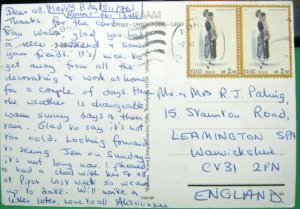 Dear all, Happy B'day (2/11/76)
Thanks for the card
from Wales, glad you had
a nice weekend & saw
your friends. It's nice to
get away from all the
decorating & work at home
for a couple of days. Here
the weather is changeable
warm sunny days & then
rain. Glad to say it's not
too cold. Looking forward
to seeing Jen on Sunday
it's not long now, I phoned
& had a chat with her & all
at Pipers last week so we am
up to date. Will write a
letter later, Love to all
ΕΛΛΑΣ HELLAS
ΔΡ 2,50
ΕΛΛΑΣ HELLAS
ΔΡ 2,50
Mr & Mrs R.J. Paling,
15, Staunton Road,
LEAMINGTON SPA
Warwickshire
CV31 2PN
ENGLAND